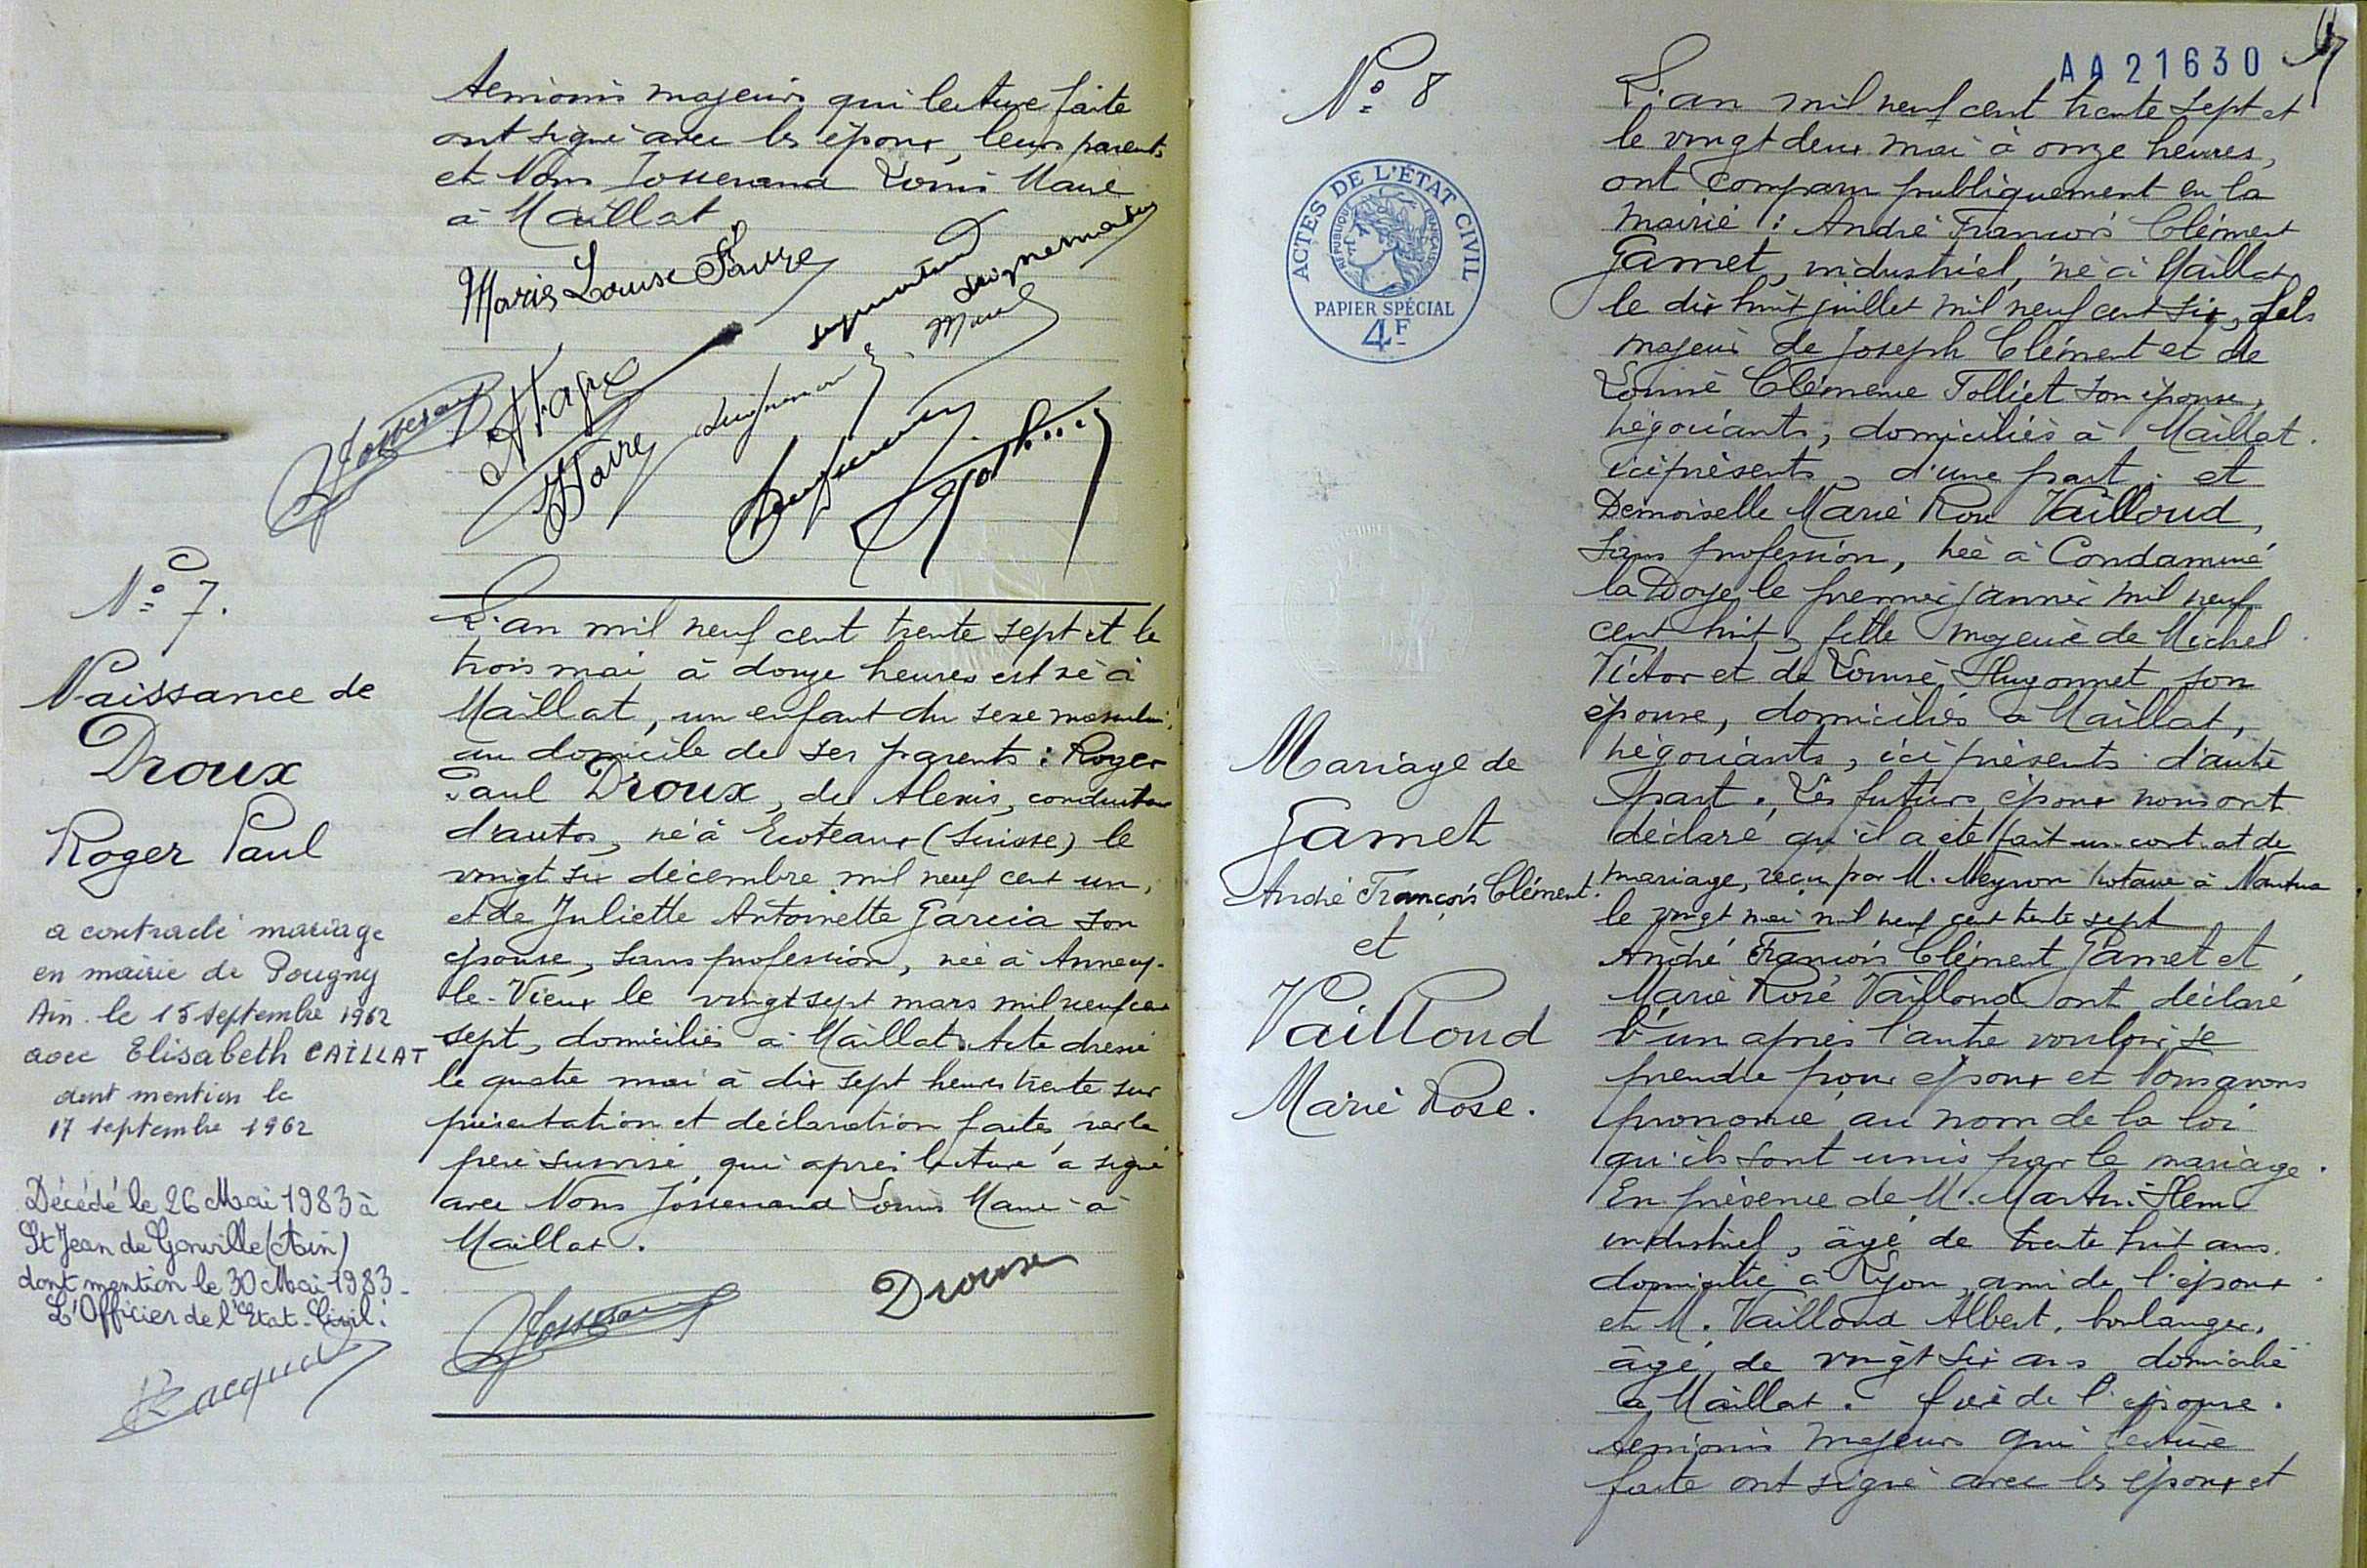 témoins majeurs qui lecture faite
ont signé avec les époux, leurs parents
et Nous Josserand Louis Maire
à Maillat
Marie Louise Favre
Favre
N° 7.
Naissance de
Droux
Roger Paul
a contracté mariage
en mairie de Pougny
Ain le 15 septembre 1962
avec Elisabeth CAILLAT
dont mention le
17 septembre 1962
Décédé le 26 Mai 1983 à
St Jean de Gonville (Ain)
dont mention le 30 Mai 1983.
L'Officier de l'Etat-Civil:
L'an mil neuf cent trente sept et le
trois mai à douze heures est né à
Maillat, un enfant du sexe masculin,
au domicile de ses parents : Roger
Paul Droux, de Alexis, conducteur
d'autos, né à Ecoteaux (Suisse) le
vingt six décembre mil neuf cent un,
et de Juliette Antoinette Garcia son
épouse, sans profession, née à Annecy-
le-Vieux le vingt sept mars mil neuf cent
sept, domiciliés à Maillat. Acte dressé
le quatre mai à dix sept heures trente sur
présentation et déclaration faites par le
père susvisé qui après lecture a signé
avec Nous Josserand Louis Maire à
Maillat.
Droux
AA21630
N° 8
ACTES DE L'ÉTAT CIVIL
RÉPUBLIQUE FRANÇAISE
PAPIER SPÉCIAL
4F
Mariage de
Gamet
André François Clément.
et
Vailloud
Marie Rose.
L'an mil neuf cent trente sept et
le vingt deux mai à onze heures,
ont comparu publiquement en la
mairie : André François Clément
Gamet, industriel, né à Maillat
le dix huit juillet mil neuf cent six, fils
majeur de Joseph Clément et de
Louise Clémence Tolliet son épouse,
négociants, domiciliés à Maillat.
ici présents, d'une part ; et
Demoiselle Marie Rose Vailloud,
sans profession, née à Condamine
la Doye le premier janvier mil neuf
cent huit, fille majeure de Michel
Victor et de Louise Hugonnet son
épouse, domiciliés à Maillat,
négociants, ici présents d'autre
part. Les futurs époux nous ont
déclaré qu'il a été fait un contrat de
mariage, reçu par M. Neyron notaire à Nantua
le vingt mai mil neuf cent trente sept
André François Clément Gamet et
Marie Rose Vailloud ont déclaré
l'un après l'autre vouloir se
prendre pour époux et Nous avons
prononcé au nom de la loi
qu'ils sont unis par le mariage.
En présence de M. Martin Henri
industriel, âgé de trente huit ans.
domicilié à Lyon, ami de l'époux
et M. Vailloud Albert, boulanger,
âgé de vingt six ans domicilié
à Maillat. frère de l'épouse.
témoins majeurs qui lecture
faite ont signé avec les époux et